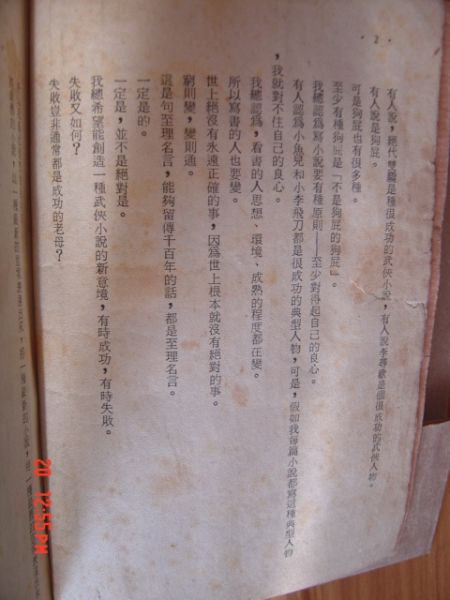 ·2·
有人說，絕代雙驕是種很成功的武俠小說，有人說李尋歡是個很成功的武俠人物。
有人說是狗屁。
可是狗屁也有很多種。
至少有種狗屁是「不是狗屁的狗屁」。
我總認為寫小說要有種原則——至少對得起自己的良心。
有人認為小魚兒和小李飛刀都是很成功的典型人物，可是，假如我每篇小說都寫這種典型人物
，我就對不住自己的良心。
我總認為，看書的人思想、環境、成熟的程度都在變。
所以寫書的人也要變。
世上絕沒有永遠正確的事，因為世上根本就沒有絕對的事。
窮則變，變則通。
這是句至理名言，能夠留傳千百年的話，都是至理名言。
一定是的。
一定是，並不是絕對是。
我總希望能創造一種武俠小說的新意境，有時成功，有時失敗。
失敗又如何？
失敗豈非通常都是成功的老母？
20 12:55 PM